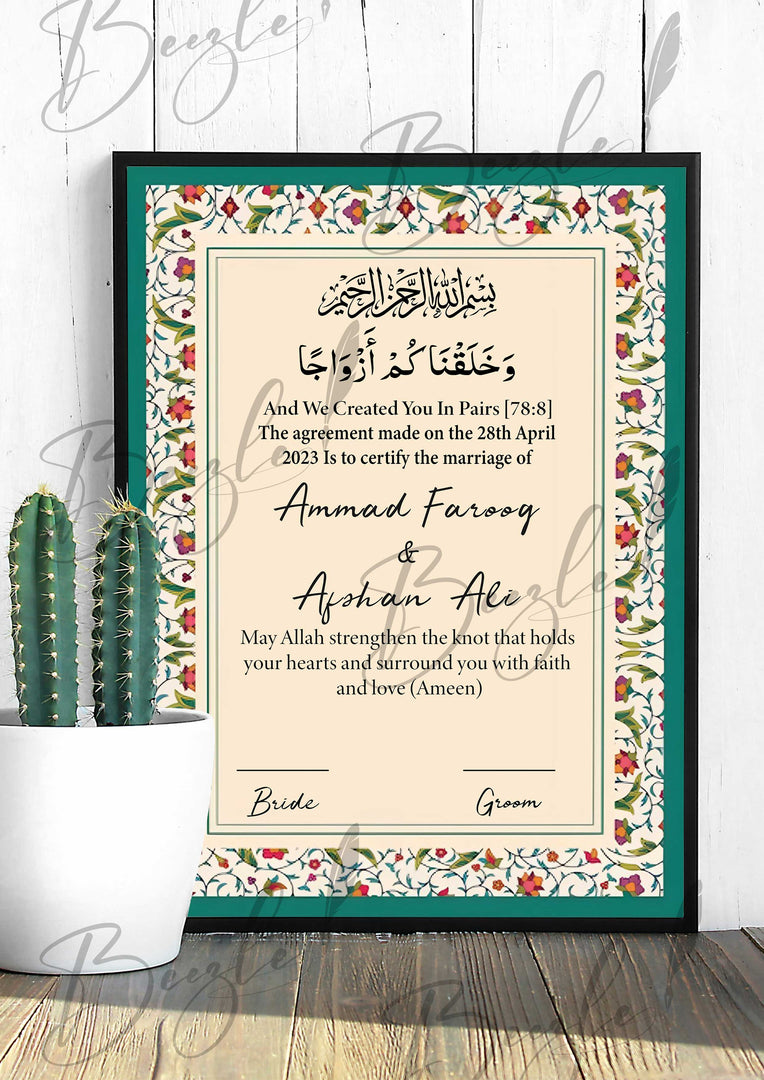 بِسْمِ اللهِ الرَّحْمٰنِ الرَّحِيْمِ
وَخَلَقْنَا كُمْ أَزْوَاجًا
And We Created You In Pairs [78:8]
The agreement made on the 28th April
2023 Is to certify the marriage of
Ammad Farooq
&
Afshan Ali
May Allah strengthen the knot that holds
your hearts and surround you with faith
and love (Ameen)
Bride
Groom
Beezle
Beezle
Beezle
Beezle
Beezle
Beezle
Beezle